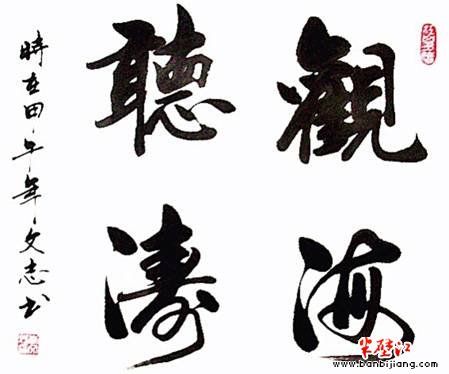 觀海
聽濤
時在甲午年文志书
半壁江
www.banbijiang.com